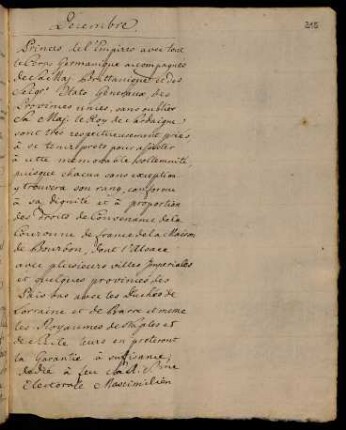 Decembre.
Princes de l'Empire avec tout
le Corps Germanique accompagnés
de Sa Maj. Brittanique et des
Seigrs. Etats Generaux des
Provinces unies, sans oublier
Sa Maj. le Roy de Sardaigne
sont tres respectueusement priés
à se tenir prets pour assister
à cette memorable sollemnité,
puisque chacun sans exception
y trouvera son rang, conforme
à sa dignité et à proportion
des Droits de Convenance de la
Couronne de france de la Maison
de Bourbon, dont l'Alsace
avec plusieurs villes Imperiales
et quelques provinces des
Païs bas avec les Duchés de
Lorraine et de Barre et meme
les Royaumes de Naples et
de Sicile leurs en preteront
la Garantie à suffisance
à feu S. A.
Electorale Maximilien